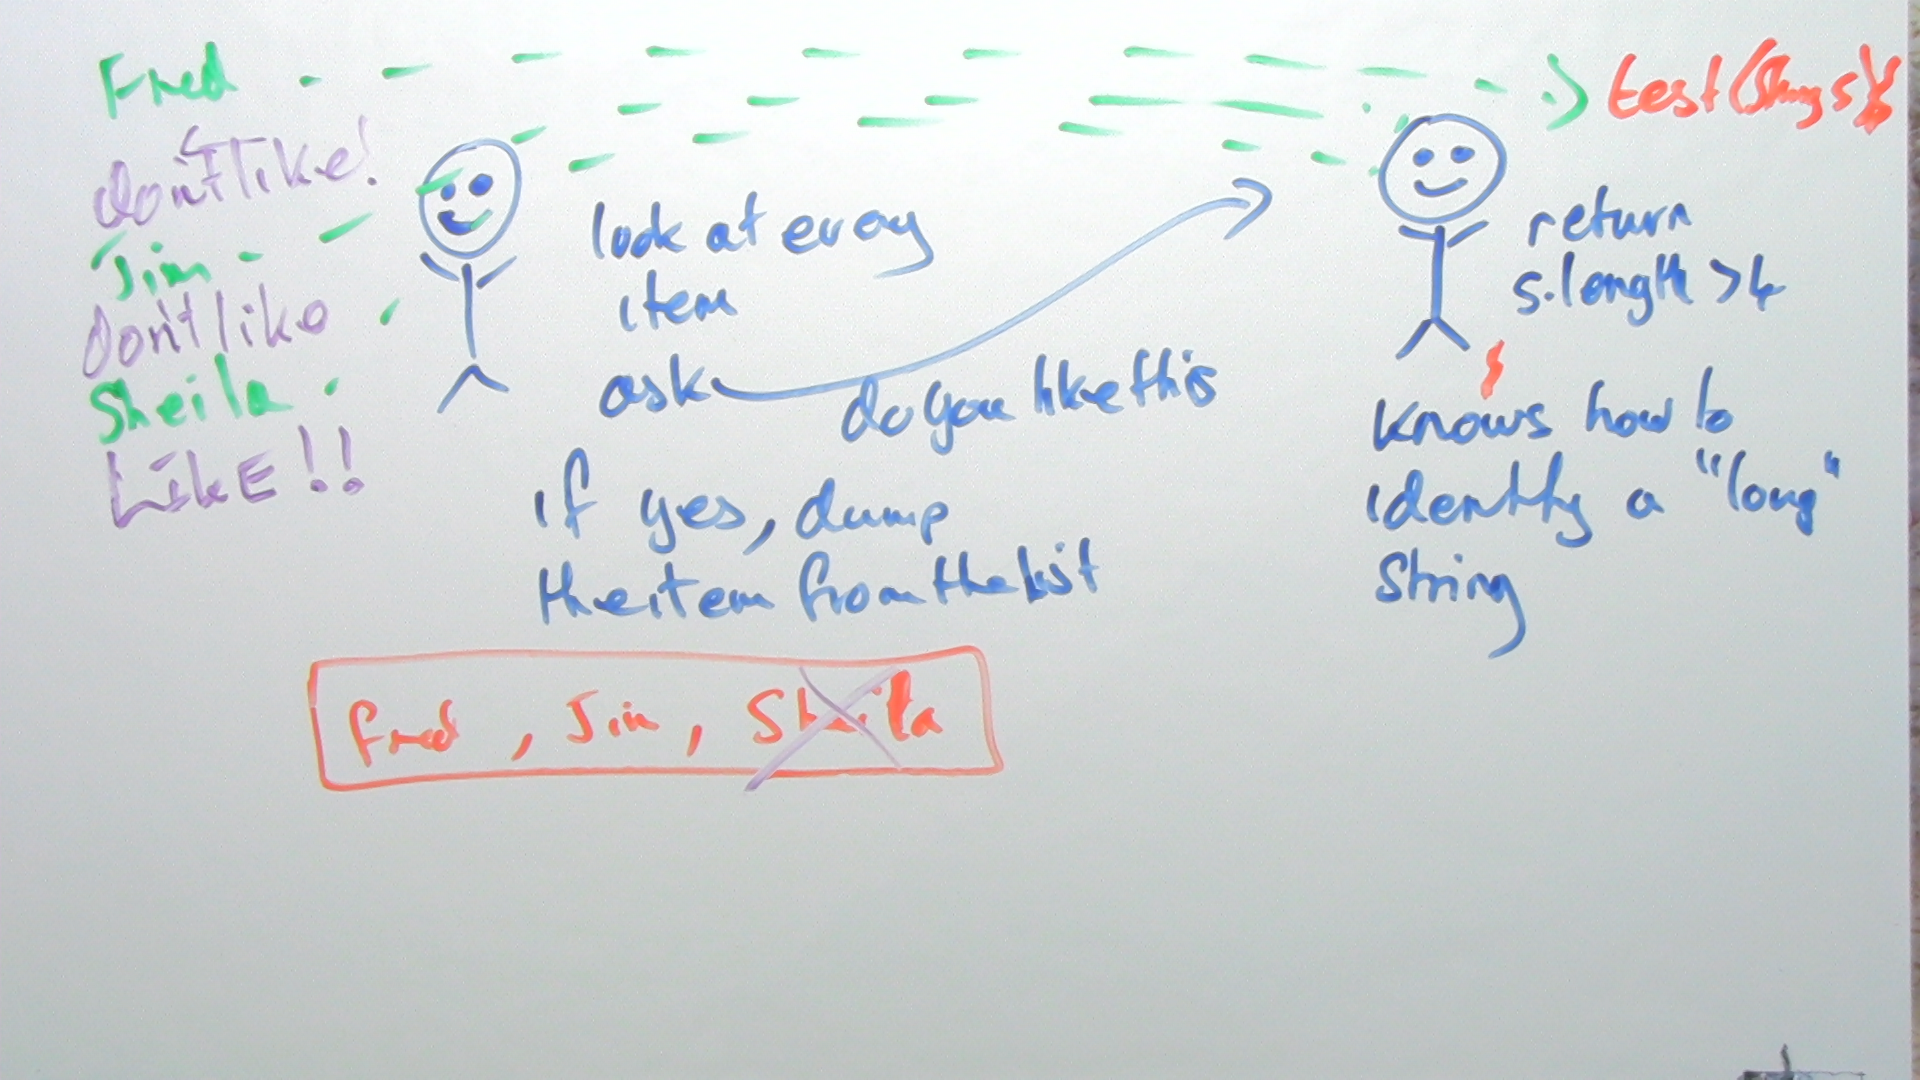 Fred
test(String s){
don't like!
Jim
don't like
Sheila
LikE!!
look at every
item
ask
do you like this
if yes, dump
the item from the list
return
s.length > 4
}
knows how to
identify a "long"
String
Fred, Jim, Sheila